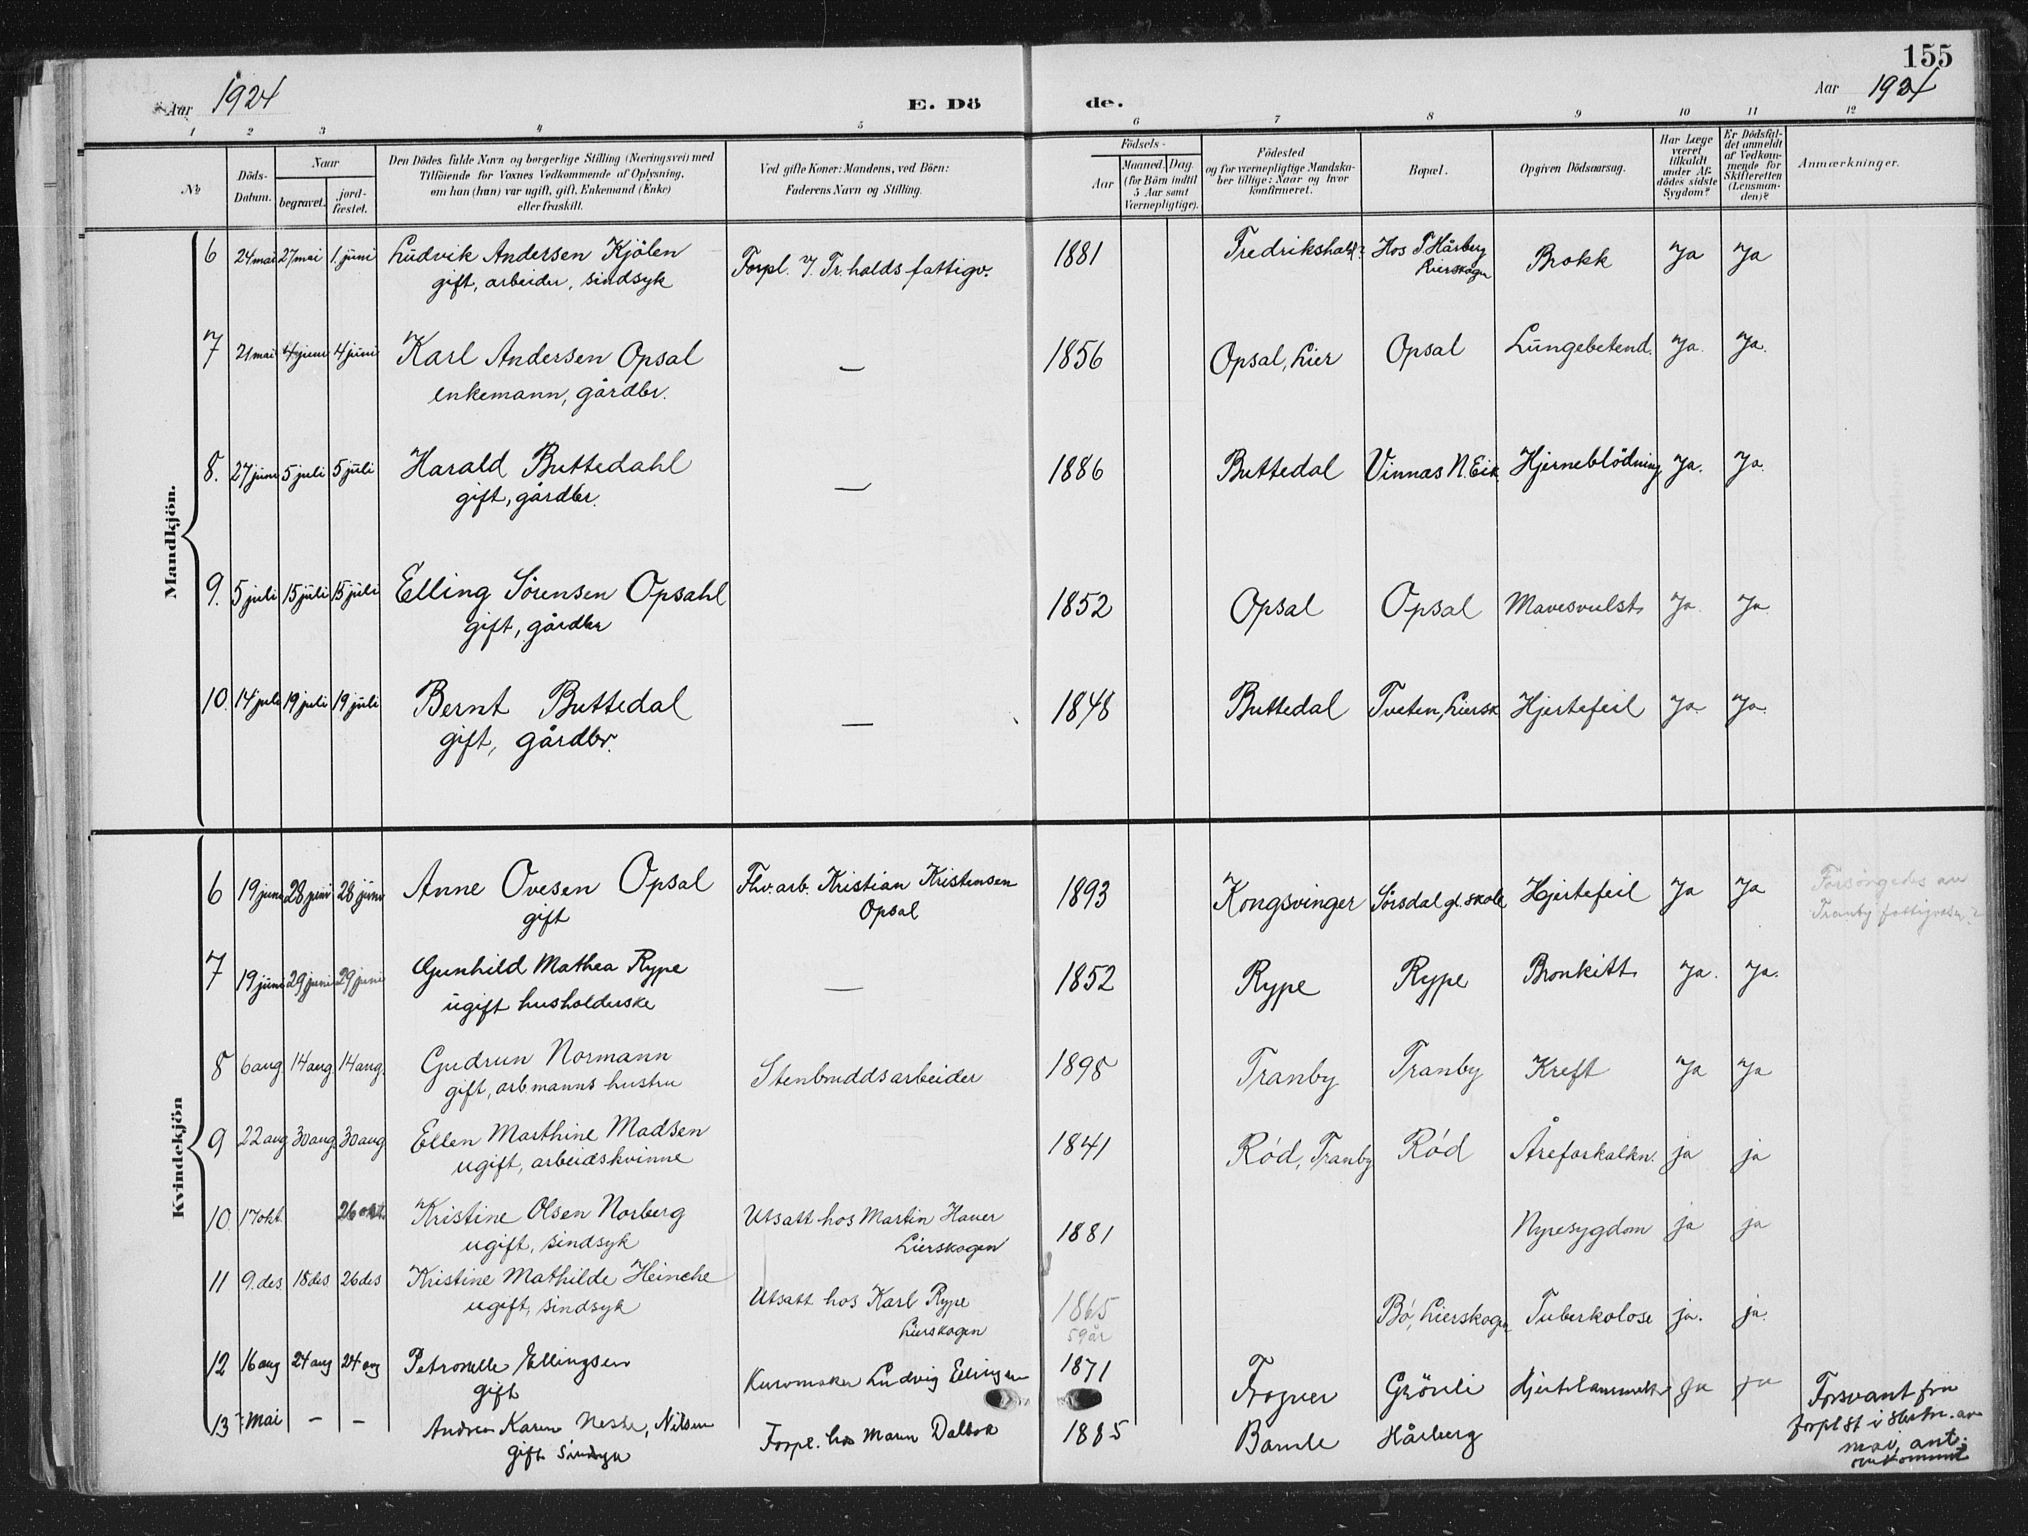 155
Aar 1924
E. Dö de.
Aar 1924
1 2 3 4 5 6 7 8 9 10 11 12
No
Döds-Datum.
Naar
begravet.
jord-fæstet.
Den Dödes fulde Navn og borgerlige Stilling (Næringsvei) med
Tilföiende for Voxnes Vedkommende af Oplysning,
om han (hun) var ugift, gift, Enkemand (Enke)
eller fraskilt.
Ved gifte Koner: Mandens, ved Börn:
Faderens Navn og Stilling.
Födsels-
Aar
Maaned. Dag.
(for Börn indtil
5 Aar samt
Værnepligtige).
Födested
og for værnepligtige Mandska-
ber tillige: Naar og hvor
konfirmeret.
Bopæl.
Opgiven Dödsaarsag.
Har Læge
været
tilkaldt
under Af-
dödes sidste
Sygdom?
Er Dödsfal-
det anmeldt
af Vedkom-
mende for
Skifteretten
(Lensman-
den)?
Anmærkninger.
Mandkjön.
6 24 mai 27 mai 1. juni Ludvik Andersen Kjölen Forpl. f. Fr.halds fattigv. 1881 Fredrikshald? Hos T Hårberg Brokk Ja Ja
gift, arbeider, sindsyk Lierskogn
7 21 mai 4 juni 4 juni Karl Andersen Opsal — 1856 Opsal, Lier Opsal Lungebetend. Ja. Ja.
enkemann, gårdbr.
8. 27 juni 5 juli 5 juli Harald Buttedahl — 1886 Buttedal Vinnas N. Eik Hjerneblödning Ja. Ja.
gift, gårdbr.
9. 5 juli 15 juli 15 juli Elling Sörensen Opsahl 1852 Opsal Opsal Mavesvulst Ja. Ja
gift, gårdbr
10. 14 juli 19 juli 19 juli Bernt Buttedal — 1848 Buttedal Tveten, Liersk Hjertefeil Ja Ja.
gift, gårdbr.
Kvindekjön
6 19 juni 28 juni 28 juni Anne Ovesen Opsal Fhv. arb. Kristian Kristensen 1893 Kongsvinger Sörsdal gl. skole Hjertefeil Ja Ja Forsörgedes av
gift Opsal Tranby fattigvesen?
7 19 juni 29 juni 29 juni Gunhild Mathea Rype — 1852 Rype Rype Bronkitt Ja. Ja.
ugift husholderske
8 6 aug 14 aug 14 aug. Gudrun Normann Stenbruddsarbeider 1898 Tranby Tranby Kreft Ja Ja
gift, arb.manns hustru
9 22 aug 30 aug 30 aug Ellen Marthine Madsen 1841 Röd, Tranby Röd Åreforkalkn. ja ja
ugift, arbeidskvinne
10. 17 okt. 26 okt. Kristine Olsen Norberg Utsatt hos Martin Hauer 1881 Nyresygdom ja ja
ugift, sindsyk Lierskogen
11 9. des. 18 des 26 des Kristine Mathilde Heinche Utsatt hos Karl Rype 1865 Bö, Lierskogn Tuberkolose ja. ja.
ugift, sindsyk Lierskogen 59 år
12 16 aug 24 aug 24 aug Petronelle Ellingsen Kurvmaker Ludvig Ellingsen 1871 Frogner Grönli ja ja Forsvant fra
gift
13 Mai — — Andrea Karen Neste, Nilsen Forpl. hos Maren Dalbok 1885 Bamle Hårberg forpl st i
gift Sindsyk mai, ant.
omkommet